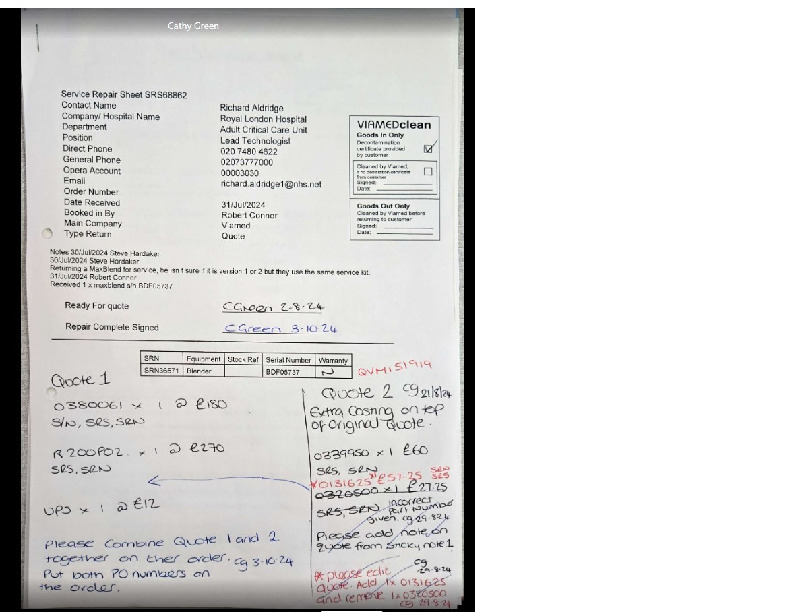 Cathy Green
Service Repair Sheet SRS68862
Contact Name Richard Aldridge
Company/ Hospital Name Royal London Hospital
Department Adult Critical Care Unit
Position Lead Technologist
Direct Phone 020 7480 4822
General Phone 02073777000
Opera Account 00003030
Email richard.aldridge1@nhs.net
Order Number
Date Received 31/Jul/2024
Booked in By Robert Connor
Main Company Viamed
Type Return Quote
VIAMEDclean
Goods In Only
Decontamination
certificate provided
by customer
Cleaned by Viamed,
Signed:
Date:
Goods Out Only
Cleaned by Viamed before
returning to customer
Signed:
Date:
Notes 30/Jul/2024 Steve Hardaker
30/Jul/2024 Steve Hardaker
Returning a MaxBlend for service, he isn't sure if it is version 1 or 2 but they use the same service kit.
31/Jul/2024 Robert Connor
Received 1 x maxblend s/n BDF05737
Ready For quote CGreen 2-8-24
Repair Complete Signed CGreen 3-10-24
SRN Equipment Stock Ref Serial Number Warranty
SRN36571 Blender BDF05737 N
QVM151919
Quote 1
0380061 x 1 @ £180
S/N, SRS, SRN
R200P02 x 1 @ £270
SRS, SRN
UPS x 1 @ £12
Please Combine Quote 1 and 2
together on the order. cg 3-10-24
Put both PO numbers on
the order.
Quote 2 cg 21/8/24
Extra Costing on top
of original Quote.
0339950 x 1 £60
SRS, SRN
*0131625 x1 £57.25 SRN SRS
0320500 x 1 £27.25
SRS, SRN incorrect
Part Number
given. cg 29.8.24
Please add note on
quote from sticky note 1
cg
29-8-24
* please edit
quote. Add 1x 0131625
and remove 1x0320500
cg 29.8.24